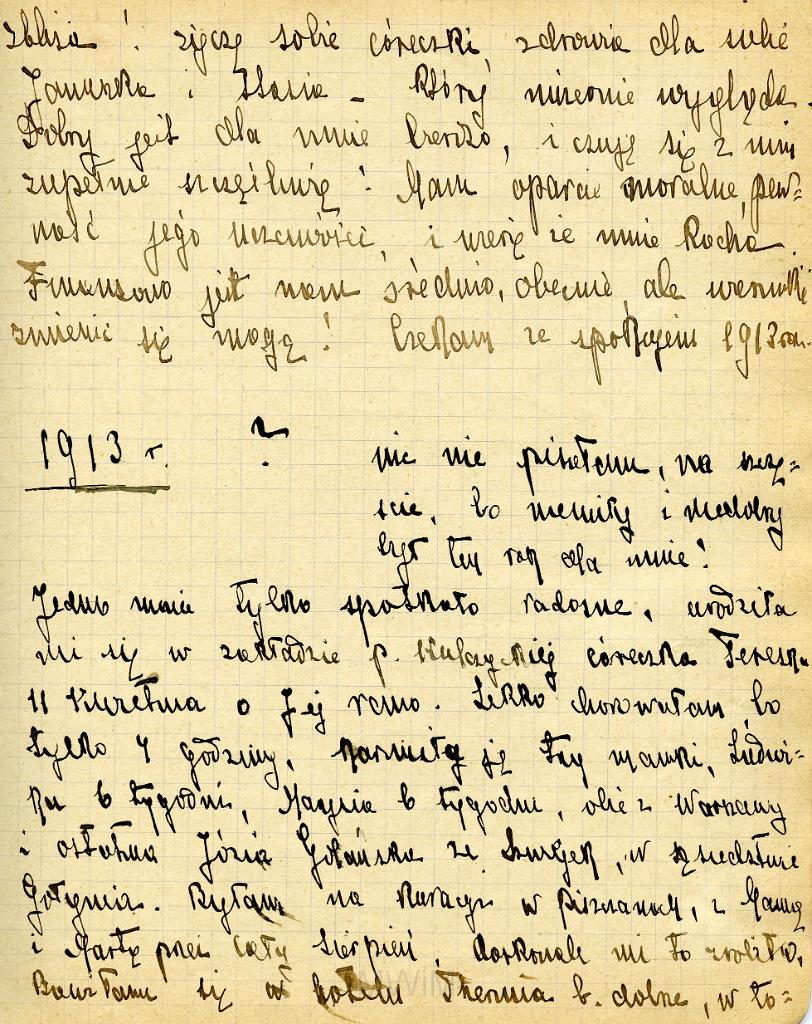 zbliża! życzę sobie córeczki, zdrowia dla siebie
Januszka i Stasia – który mizernie wygląda.
Dobry jest dla mnie bardzo, i czuję się z nim
zupełnie szczęśliwą! Mam oparcie moralne, pew=
ność jego uczciwości, i wierzę że mnie kocha.
Finansowo jest nam średnio, obecnie, ale warunki
zmienić się mogą! Czekam ze spokojem 1913
1913 r. ? nic nie pisałam, na szczę=
ście, bo niemiły i niedobry
był ten rok dla mnie!
Jedno mnie tylko spotkało radosne, urodziła
mi się w zakładzie p. córeczka Tereska
11 Kwietnia o 7ej rano. Lekko chorowałam, bo
tylko 4 godziny, karmiły ją trzy mamki, Ludwi=
ka 6 tygodni, Marynia 6 tygodni, obie z Warszawy
i ostatnia Józia Gołańska ze, w sąsiedztwie
Gołynia. Byłam na kuracji w Piszczanach, z Mamą
i Martą przez cały sierpień, doskonale mi to zrobiło,
Bawiłam się w hotelu Thermia b. dobrze, w to=